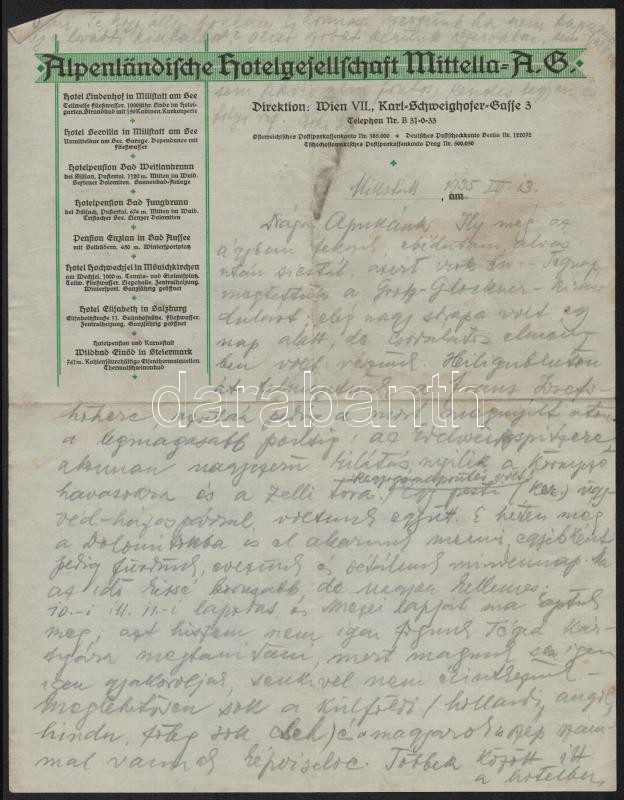 Alpenländische Hotelgesellschaft Mittella-A.G.
Hotel Lindenhof in Millstatt am See
Teilweise fließwasser. 1000jähr. Linde im Hotel-
garten. Strandbad mit 150 Kabinen. Kurkonzerte
Hotel Seevilla in Millstatt am See
Unmittelbar am See. Garage. Dependance mit
fließwasser
Hotelpension Bad Weitlanbrunn
bei Sillian, Pustertal. 1120 m. Mitten im Wald.
Sextener Dolomiten. Sonnenbad-Anlage
Hotelpension Bad Jungbrunn
bei Dölsach, Pustertal. 674 m. Mitten im Wald.
Tristacher See. Lienzer Dolomiten
Pension Enzian in Bad Aussee
mit Solbädern. 650 m. Wintersportplatz
Hotel Hochwechsel in Mönichkirchen
am Wechsel. 1000 m. Tennis- und Eislaufplatz.
Teilw. Fließwasser. Liegehalle. Zentralheizung.
Wintersport. Ganzjährig geöffnet
Hotel Elisabeth in Salzburg
Elisabethstraße 11. Bahnhofnähe. Fließwasser.
Zentralheizung. Ganzjährig geöffnet
Hotelpension und Kuranstalt
Wildbad Einöd in Steiermark
741 m. Kohlensäurehältige Eisenthermalquellen.
Thermalschwimmbad
Direktion: Wien VII., Karl-Schweighofer-Gasse 3
Telephon Nr. B 31-0-33
Österreichisches Postsparkassenkonto Nr. 185.000 • Deutsches Postscheckkonto Berlin Nr. 122072
Tschechoslowakisches Postsparkassenkonto Prag Nr. 500.050
Millstatt, am 1935 VIII 13.
Drága Apukánk Ily még az
ágyban fekszik, ebédutáni alvás
után sziesztál, azért irok én. Tegnap
megtettük a Groß-Glockner-kirán-
dulást: elég nagy strapa volt egy
nap alatt, de csodálatos élmény-
ben volt részünk. Heiligenbluton
át Franz Josefs-
höhere a most megnyilt úton
a legmagasabb pontig: az Edelweissspitzere
ahonnan nagyszerű kilátás nyilik a környező
havasokra és a Zelli tóra. Egy pesti (ker.) ügy-
véd-házaspárral voltunk együtt. E héten még
a Dolomitokba is el akarunk menni, egyébként
pedig fürdünk, evezünk és sétálunk mindennap.
az idő kissé borusabb, de nagyon kellemes.
10.-i ill. 11.-i lapodat és Mezei lapját ma kaptuk
meg, azt hiszem nem igen fogunk Téged kár-
tyára megtanitani, mert magunk sem igen
igen gyakoroljuk, senkivel nem
meglehetősen sok a külföldi (hollandi, angol,
hindu, főleg sok cseh) a magyarok is szép szám-
mal vannak képviselve. Többek között itt
a hotelben